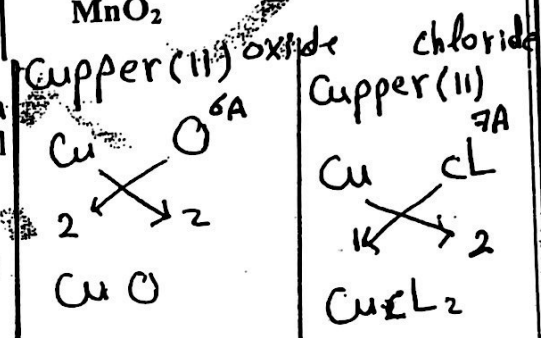 MnO₂
Cupper(II) oxide
Cu O 6A
2 2
Cu O
chloride
Cupper(II)
7A
Cu cL
1 2
CucL₂